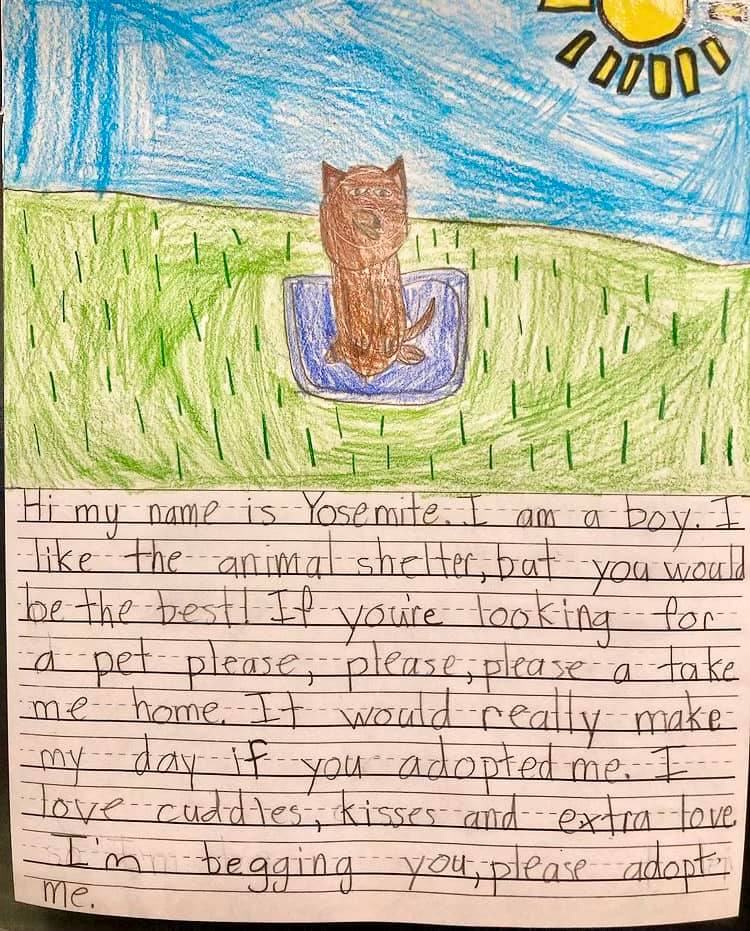 Hi my name is Yosemite. I am a boy. I
like the animal shelter, but you would
be the best! If you're looking for
a pet please, please, please a take
me home. It would really make
my day if you adopted me. I
love cuddles, kisses and extra love.
I'm begging you, please adopt
me.